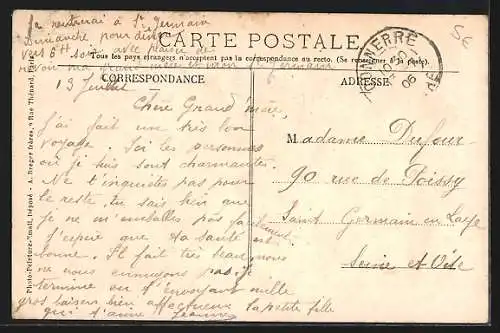 Je rentrerai à St Germain
Dimanche pour dîner
vers 6h soir avec plaisir de
revoir ma grand mère et mon St Germain
CARTE POSTALE
Tous les pays étrangers n'acceptent pas la correspondance au recto. (Se renseigner à la poste).
CORRESPONDANCE
ADRESSE
TONNERRE
06
5€
13 Juillet
Chère Grand'mère,
J'ai fait un très bon
voyage. Ici les personnes
où je suis sont charmantes.
Ne t'inquiètes pas pour
le reste, tu sais bien que
je ne m'emballes pas facilement.
J'espère que ta santé est
bonne. Il fait très beau, nous
ne nous ennuyons pas. Je
termine en t'envoyant mille
gros baisers bien affectueux
la petite fille
qui t'aime Jeanne
Madame Dufour
90 rue de Poissy
Saint Germain en Laye
Seine et Oise
Photo-Peinture-Émail, Déposé - A. Breger frères, 9 Rue Thénard, Paris